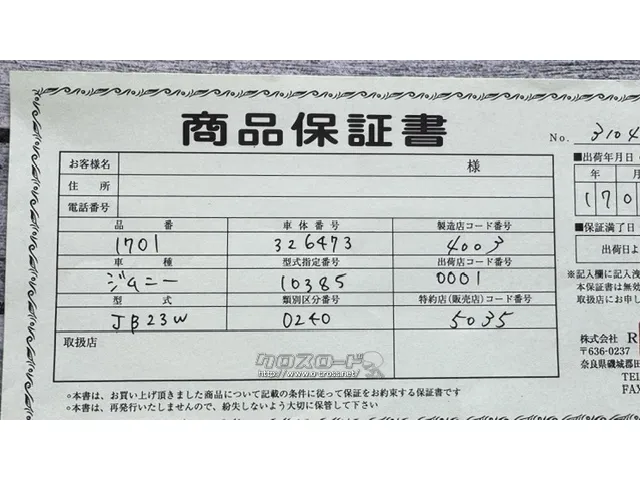 商品保証書
No. 3104
お客様名 様
住所
電話番号
品番 車体番号 製造店コード番号
1701 326473 4003
車種 型式指定番号 出荷店コード番号
ジムニー 10385 0001
型式 類別区分番号 特約店(販売店)コード番号
JB23W 0240 5035
取扱店
クロスロード
http://www.o-cross.net/
○本書は、お買い上げ頂きました商品について記載の条件に従って保証をお約束する保証書です
○本書は、再発行いたしませんので、紛失しないよう大切に保管して下さい
■出荷年月日
年 月
170
■保証満了日
出荷日よ
※記入欄に記入洩
本保証書は無効
取扱店にお申し
株式会社 R
〒636-0237
奈良県磯城郡田
TEL
FAX